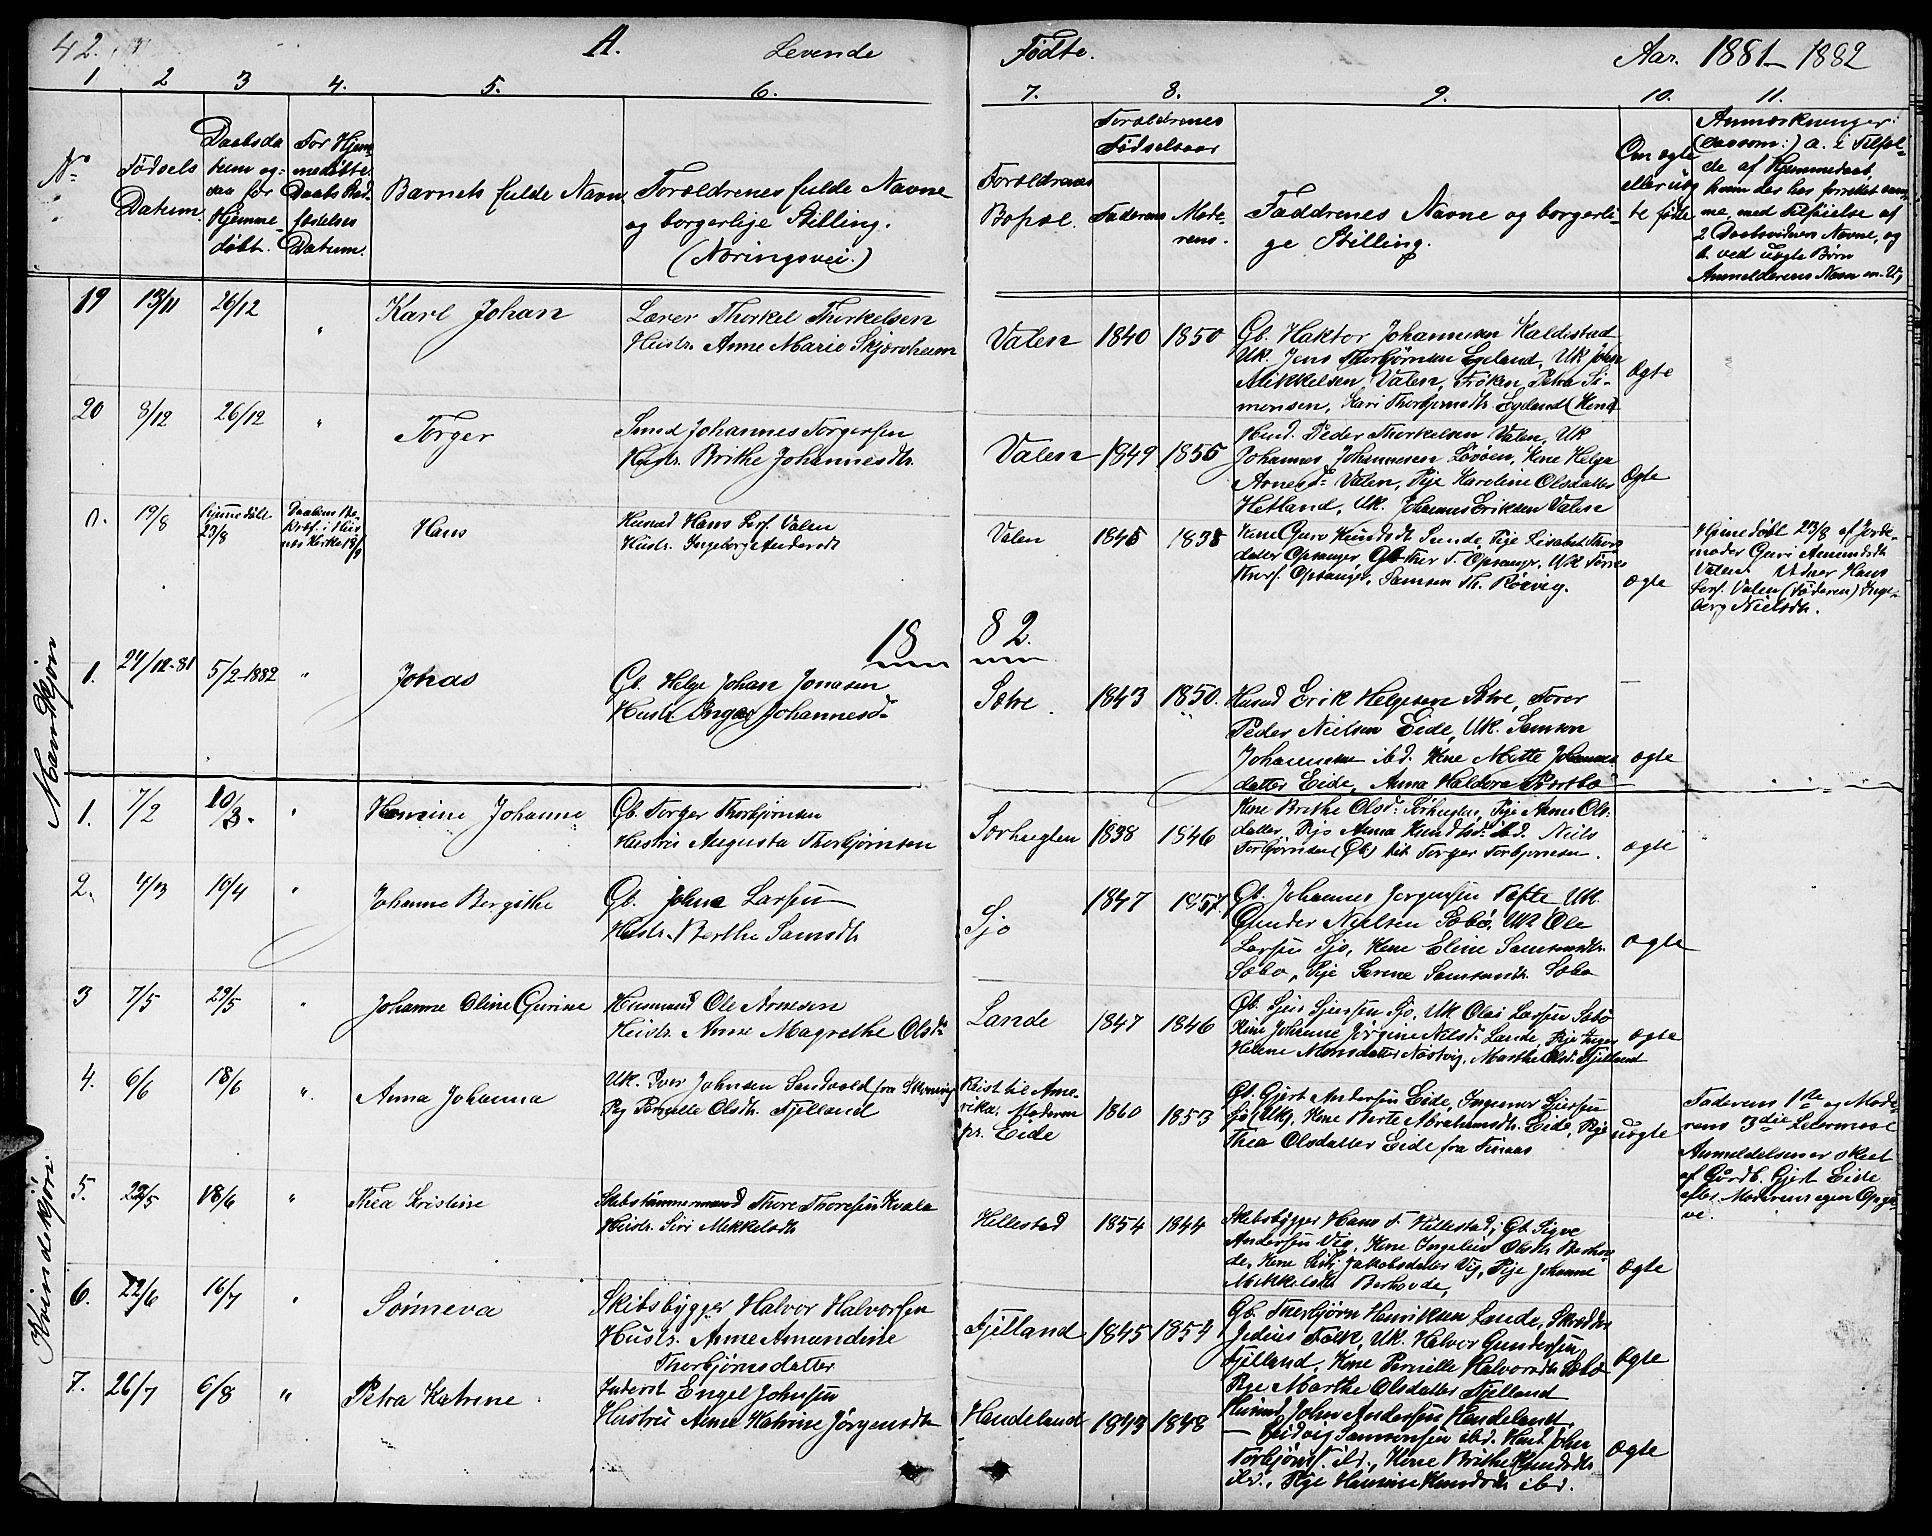 42.
A.
Levende
Fødte.
Aar. 1881–1882
1 2 3 4. 5. 6. 7. 8. 9. 10. 11.
No
Fødsels Datum.
Daabsda
tum og
saa for
Hjemme-
døbt.
For Hjem-
medøbte
Daabs Bad-
festelses
Datum.
Barnets fulde Navn
Forældrenes fulde Navne
og borgerlige Stilling.
(Næringsvei.)
Forældrenes
Bopæl.
Forældrenes
Fødselsaar
Faderens
Mode-
rens.
Faddrenes Navne og borgerli-
ge Stilling.
Om ægte
eller uæg
te fødte
Anmærkninger:
(saasom:) a. i Tilfæl-
de af Hjemmedaab,
hvem der har forrettet sam-
me, med Tilføielse af
2 Daabsvidners Navne, og
b. ved uægte Børn
Anmelderens Navn
Mandkjøn
19 13/11 26/12 " Karl Johan
Lærer Thorkel Thorkelsen
Hustr. Anne Marie Skjærsheim
Valen 1840 1850
Gb. Haktor Johannesen Haldestad
Uk. Jens Thorbjørnsen Egeland, Uk Johan
Mikkelsen Valen, Frøken Petra Si-
monsen, Kari Thorbjørnsdtr Egeland
Ægte
20 8/12 26/12 " Torger
Smed Johannes Torgersen
Hustr. Brithe Johannesdtr.
Valen 1849 1855
Husmd. Peder Thorkelsen Valen, Uk
Johannes Johannesen Løvøen, Kone Helga
Arnesd. Valen, Pige Karoline Olsdatter
Hetland, Uk. Johannes Eriksen Valen
Ægte
n. 19/8 Hjemmedøbt
23/8
Hans
Husmd Hans Valen
Hustr. Ingeborg Andersdt
Valen 1845 1838
Kone Guro Knudsdt Sunde, Pige Lisabet Thors
datter Opsanger, Gb Ther T. Opsanger, Uk Tørres
Thorf. Opsanger, Samson Th. Røsvig.
ægte
Hjmedøbt 23/8 af Jorde-
moder Guri Amundsdt
Valen. Vidner Hans
Valen (Faderen) Inge-
borg Nielsdtr.
1882.
1. 27/12-81 5/2-1882 " Johas
Gb. Helge Johan Jonasen
Hustr Inger Johannesd.
Sætre 1843 1850.
Husmd Erik Helgesen Sætre, Forer
Peder Nielsen Eide, Uk. Samson
Johannesen ibd. Kone Mette Johannes
datter Eide, Anna Haldora
ægte
Kvindekjøn
1. 7/2 10/3- " Hemine Johanne
Gb. Torger Thorbjørnsen
Hustru Augusta Thorbjørnsen
Sørhuglen 1838 1846
Kone Brithe Olsd. Sørhuglen, Pige Anne Ols-
datter, Pige Anna Knudtsd. ibd. Niels
Torbjørnsen (Gb.) bit Torger Torbjørnsen.
ægte
2. 4/3 10/4 " Johanne Bergithe
Gb. Johne Larsen
Hustr. Berthe Samsdtr
Sjo 1847 1857.
Gb. Johannes Jørgensen Tofte Uk.
Gunder Nielsen Sæbø, Uk Ole
Larsen Sjo, Kone Eline Samsonsdtr.
Sæbø, Pige Serene Samsonsdtr. Sæbø
ægte
3 7/5 29/5 " Johanne Oline Gurine
Husmand Ole Arnesen
Hustr. Anne Magrethe Olsd.
Lande 1847 1846
Gb. Sjur Sjursen Sjo, Uk Olai Larsen Sæbø
Kone Johanne Jørgine Nilsd. Lande, Pige Inger
Helene Monsdatter Nøstvig, Marthe Olsd. Fjelland
ægte
4. 6/6 18/6 " Anna Johanna
Uk. Iver Johnsen Sandvold
Pig Pernille Olsdtr. Fjelland
Reist til Ame-
rika. Moderen
pr. Eide
1860 1853
Gb. Gjert Andersen Eide, Ingemar Sjursen
Sjo (Uk), Kone Berte Abrahamsdtr. Eide, Pige
Thea Olsdatter Eide fra Finaas
uægte
Faderens 1ste og Mode-
rens 3die Leiermaal
Anmeldelsen er skeet
af Gårdb. Gjert Eide
efter Moderens egen Opgi-
ve.
5. 28/5 18/6 " Thea Kristine
Skibstømmermand Thore Thoresen Kvale
Hustr. Siri Mikkelsdtr
Hillestad 1854 1844
Skibsbygger Hans T. Hillestad, Gb. Sigve
Andersen Vig, Kone Ingeleiv Olsdtr. Berho-
de, Kone Siri Jakobsdatter Vig, Pige Johanne
Mikkelsdtr Berhovde,
ægte
6. 22/6 16/7 " Sønneva
Skibsbygger Halvor Halvorsen
Hustr. Anne Amandine
Thorbjørnsdatter
Fjelland 1845 1854
Gb. Thorbjørn Henriksen Lande, Skrædder
Jedius Falk, Uk. Halvor Gundersen
Fjelland, Kone Pernille Halvorsdtr Sæbø
Pige Marthe Olsdatter Fjelland
ægte
7. 26/7 6/8 " Petra Katrine
Inderst Engel Johnsen
Hustru Anne Katrine Jørgensdtr
Handeland 1843 1848
Husmd John Andersen Handeland,
— Ludvig Samsonsen ibd. Husmd. John
Torbjørns. ibd., Kone Brithe Knudsdtr
ibd., Pige Hansine Knudsdtr ibd.
ægte